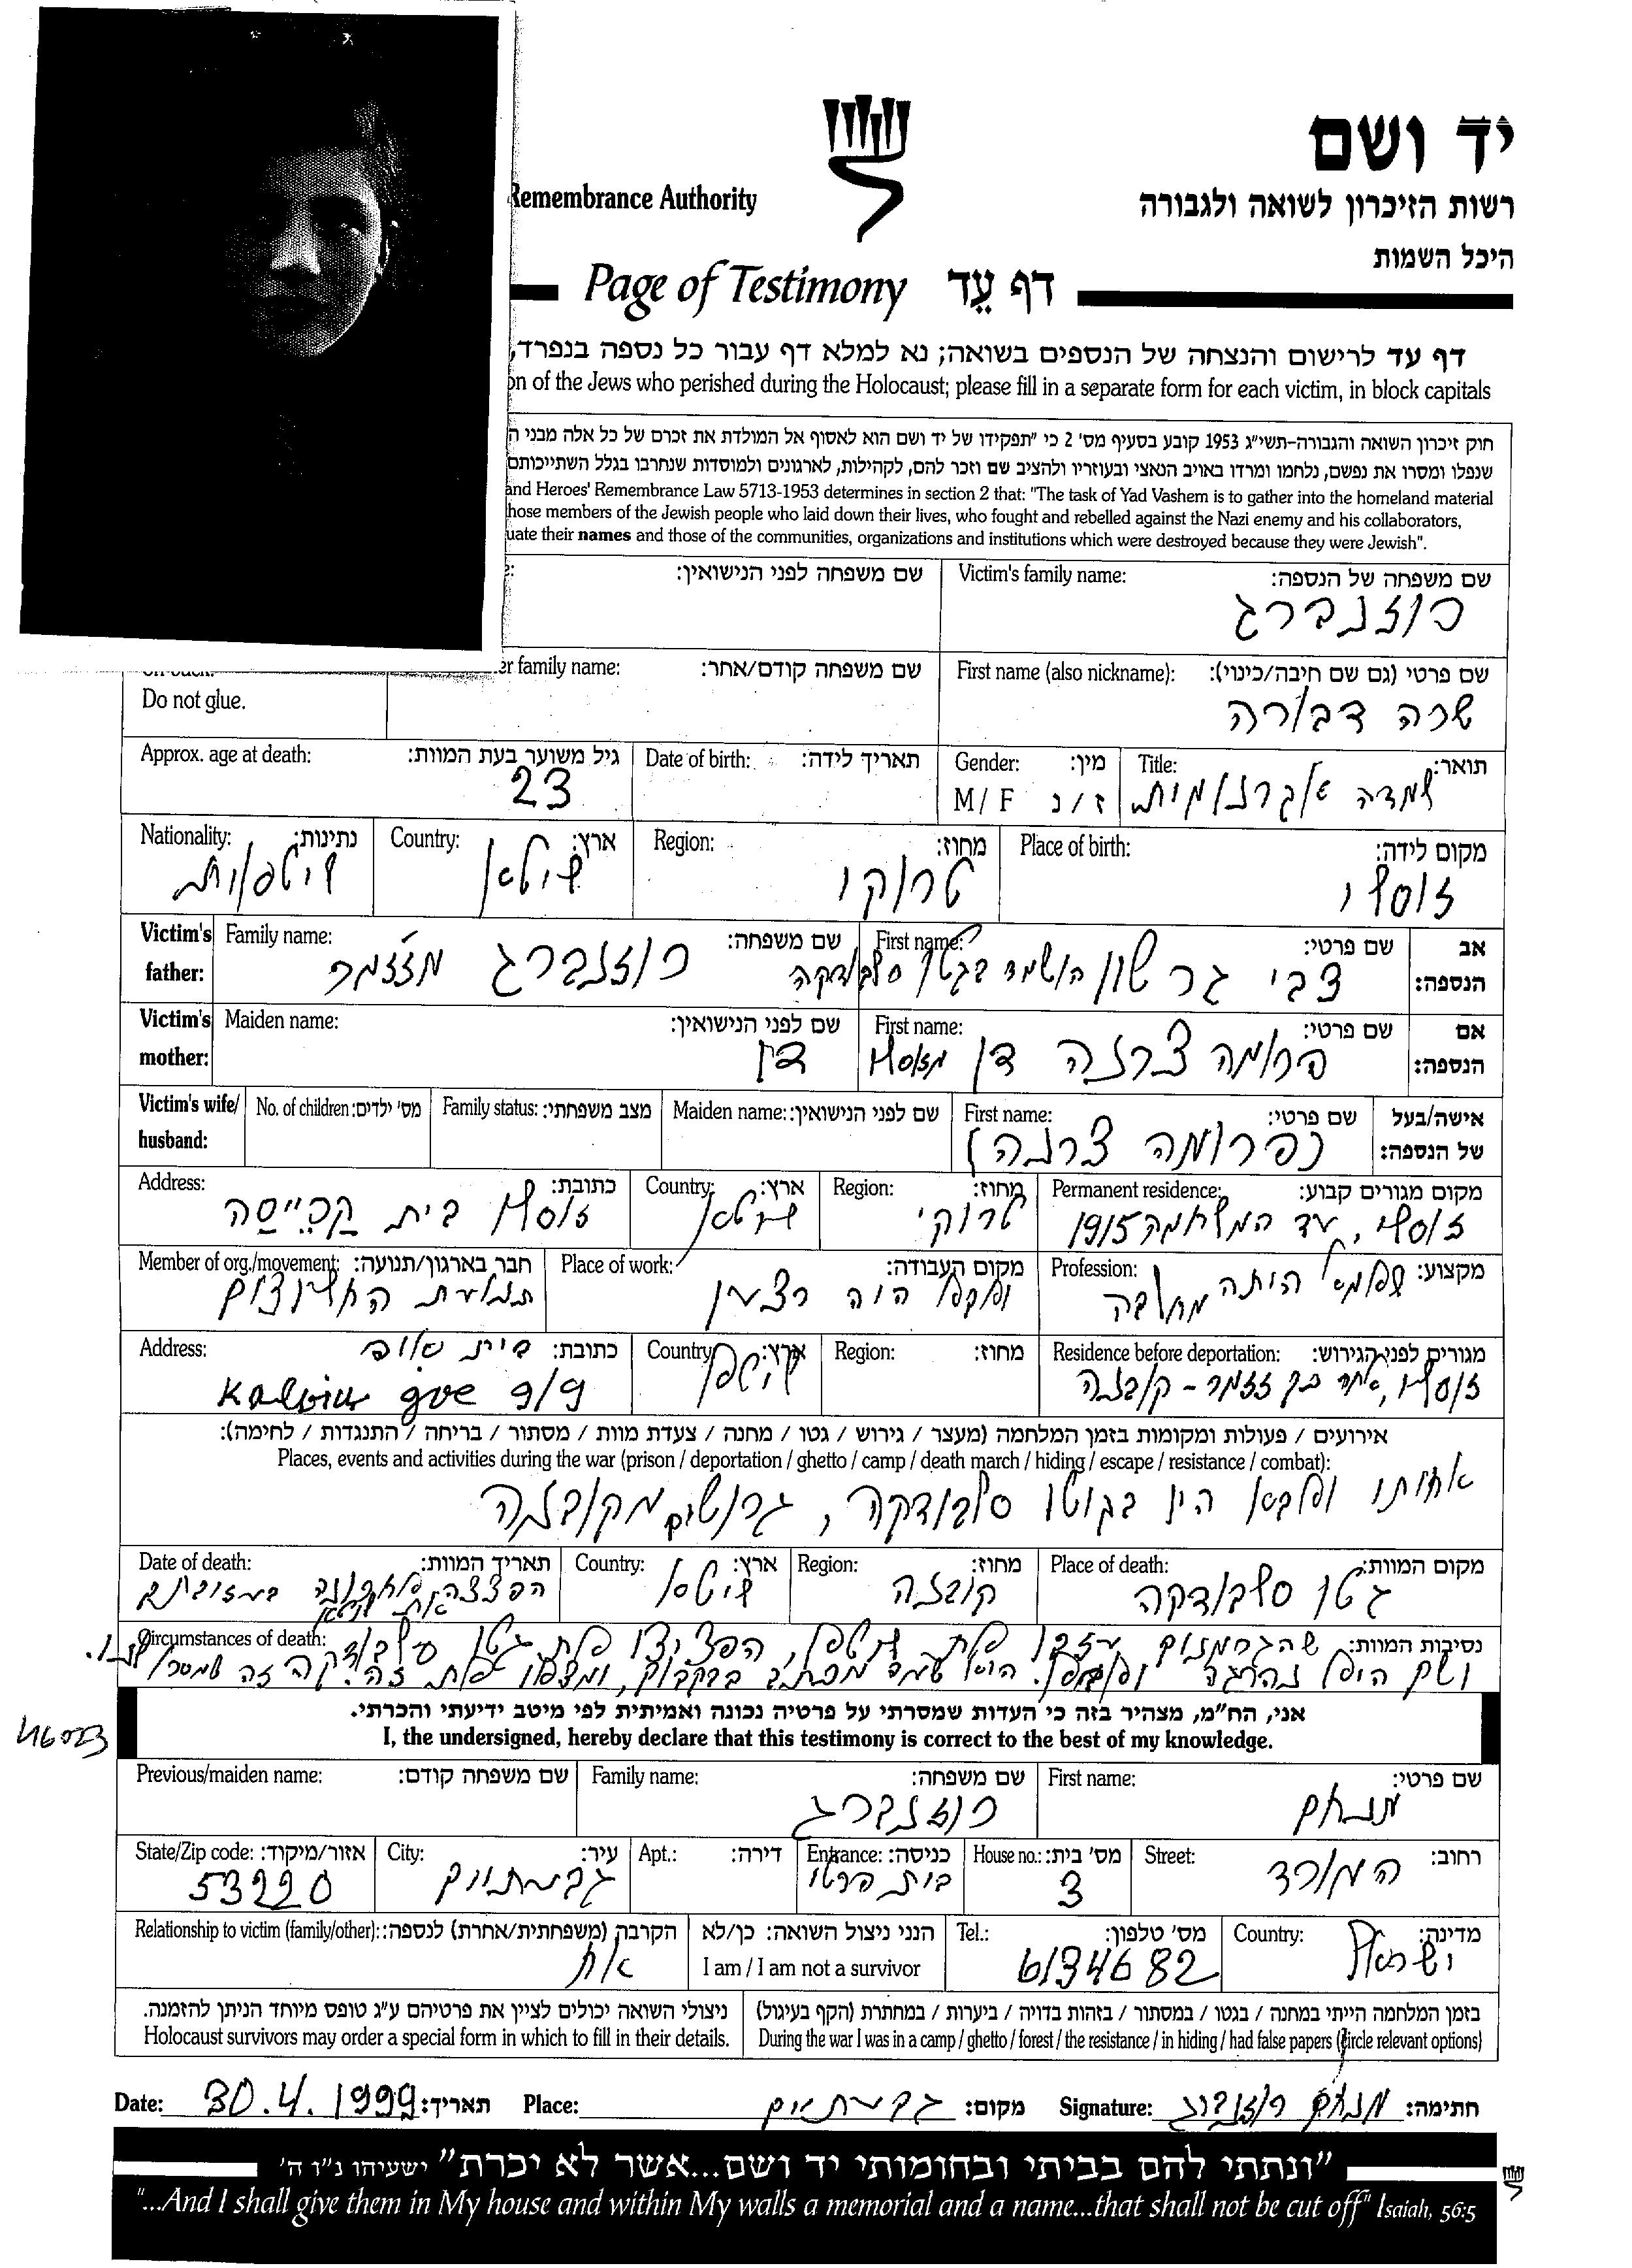 יד ושם
רשות הזיכרון לשואה ולגבורה
היכל השמות
Remembrance Authority
Page of Testimony דף עֵד
דף עד לרישום והנצחה של הנספים בשואה; נא למלא דף עבור כל נספה בנפרד,
on of the Jews who perished during the Holocaust; please fill in a separate form for each victim, in block capitals
חוק זיכרון השואה והגבורה-תשי״ג 1953 קובע בסעיף מס׳ 2 כי ״תפקידו של יד ושם הוא לאסוף אל המולדת את זכרם של כל אלה מבני ה
שנפלו ומסרו את נפשם, נלחמו ומרדו באויב הנאצי ובעוזריו ולהציב שם וזכר להם, לקהילות, לארגונים ולמוסדות שנחרבו בגלל השתייכותם
and Heroes' Remembrance Law 5713-1953 determines in section 2 that: "The task of Yad Vashem is to gather into the homeland material
hose members of the Jewish people who laid down their lives, who fought and rebelled against the Nazi enemy and his collaborators,
uate their names and those of the communities, organizations and institutions which were destroyed because they were Jewish".
שם משפחה של הנספה: Victim's family name: שם משפחה לפני הנישואין:
רוזנברג
שם פרטי (גם שם חיבה/כינוי): First name (also nickname): שם משפחה קודם/אחר: er family name:
שרה דבורה
Do not glue.
תואר: Title: מין: Gender: תאריך לידה: Date of birth: גיל משוער בעת המוות: Approx. age at death:
ז / נ M / F 23
מקום לידה: Place of birth: מחוז: Region: ארץ: Country: נתינות: Nationality:
זוסלי טרוקי ליטא ליטאית
אב הנספה: Victim's father: שם פרטי: First name: שם משפחה: Family name:
צבי גרשון הושמד בגטו סלבודקה רוזנברג
אם הנספה: Victim's mother: שם פרטי: First name: שם לפני הנישואין: Maiden name:
פרומה צרנה דן דן
אישה/בעל של הנספה: Victim's wife/ husband: שם פרטי: First name: שם לפני הנישואין: Maiden name: מצב משפחתי: Family status: מס׳ ילדים: No. of children:
(פרומה צרנה)
מקום מגורים קבוע: Permanent residence: מחוז: Region: ארץ: Country: כתובת: Address:
זוסלי, עד המלחמה 1915 טרוקי ליטא זוסלי בית
מקצוע: Profession: מקום העבודה: Place of work: חבר בארגון/תנועה: Member of org./movement:
הייתה היה תנועת החלוצים
מגורים לפני הגירוש: Residence before deportation: מחוז: Region: ארץ: Country: כתובת: Address:
זוסלי, קובנה 9/9
אירועים / פעולות ומקומות בזמן המלחמה (מעצר / גירוש / גטו / מחנה / צעדת מוות / מסתור / בריחה / התנגדות / לחימה):
Places, events and activities during the war (prison / deportation / ghetto / camp / death march / hiding / escape / resistance / combat):
אחותי ואבא היו בגטו סלבודקה, מקובנה
מקום המוות: Place of death: מחוז: Region: ארץ: Country: תאריך המוות: Date of death:
גטו סלבודקה קובנה ליטא הפצצה
נסיבות המוות: Circumstances of death:
שהגרמנים עזבו את ליטא, הפציצו את גטו סלבודקה
ושם היא נהרגה
אני, הח״מ, מצהיר בזה כי העדות שמסרתי על פרטיה נכונה ואמיתית לפי מיטב ידיעתי והכרתי.
I, the undersigned, hereby declare that this testimony is correct to the best of my knowledge.
שם פרטי: First name: שם משפחה: Family name: שם משפחה קודם: Previous/maiden name:
מנחם רוזנברג
רחוב: Street: מס׳ בית: House no.: כניסה: Entrance: דירה: Apt.: עיר: City: אזור/מיקוד: State/Zip code:
המורד 3 בית פרטי גבעתיים 53220
מדינה: Country: מס׳ טלפון: Tel.: הנני ניצול השואה: כן/לא הקרבה (משפחתית/אחרת) לנספה: Relationship to victim (family/other):
ישראל 6134682 I am / I am not a survivor אח
בזמן המלחמה הייתי במחנה / בגטו / במסתור / בזהות בדויה / ביערות / במחתרת (הקף בעיגול)
During the war I was in a camp / ghetto / forest / the resistance / in hiding / had false papers (circle relevant options)
ניצולי השואה יכולים לציין את פרטיהם ע״ג טופס מיוחד הניתן להזמנה.
Holocaust survivors may order a special form in which to fill in their details.
חתימה: מנחם רוזנברג Signature: מקום: גבעתיים Place: תאריך: 30.4.1999 Date:
״ונתתי להם בביתי ובחומותי יד ושם...אשר לא יכרת״ ישעיהו נ״ו ה׳
"...And I shall give them in My house and within My walls a memorial and a name...that shall not be cut off" Isaiah, 56:5